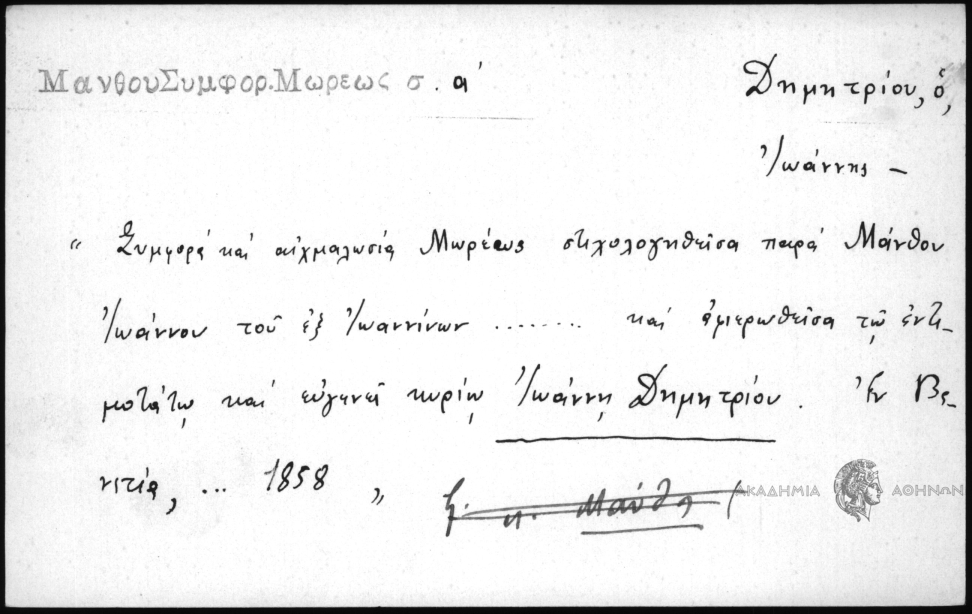 ΜανθουΣυμφορ.Μωρεως σ. α'
Δημητρίου, ὁ,
Ἰωάννης –
“ Συμφορά καί αἰχμαλωσία Μωρέως στιχολογηθεῖσα παρά Μάνθου
Ἰωάννου τοῦ ἐξ Ἰωαννίνων ........ καί ἀφιερωθεῖσα τῷ ἐντι-
μοτάτῳ καί εὐγενεῖ κυρίῳ Ἰωάννῃ Δημητρίου. Ἐν Βε-
νετίᾳ, ... 1858 „
ξ. κ. Μανθ
ΑΚΑΔΗΜΙΑ ΑΘΗΝΩΝ